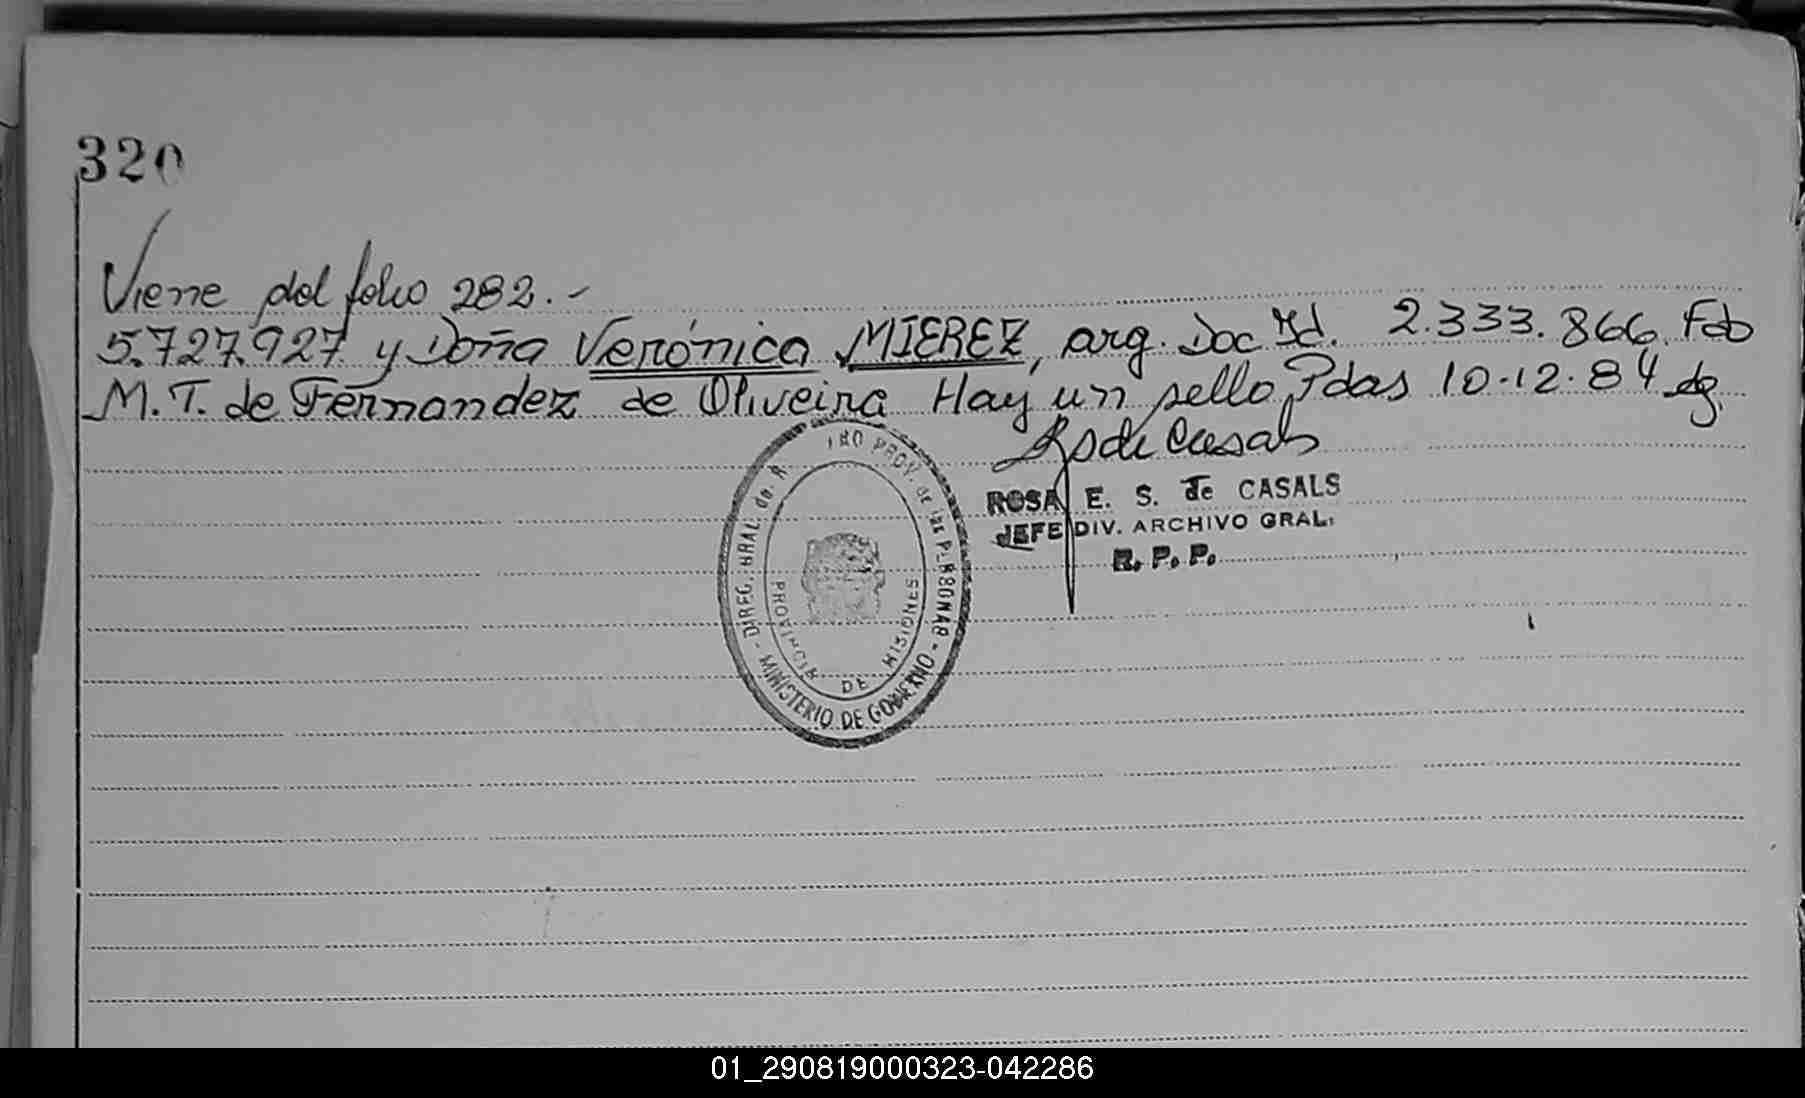 320
Viene del folio 282.-
5.727.927 y Doña Verónica MIEREZ, arg. Doc Id. 2.333.866. Fdo
M. T. de Fernandez de Oliveira Hay un sello Pdas 10.12.84 dg.
RSde Casals
ROSA E. S. de CASALS
JEFE DIV. ARCHIVO GRAL.
R. P. P.
DIREC. GRAL. de. R TRO PROV. de las PERSONAS - MINISTERIO DE GOBIERNO -
PROVINCIA DE MISIONES
01_290819000323-042286